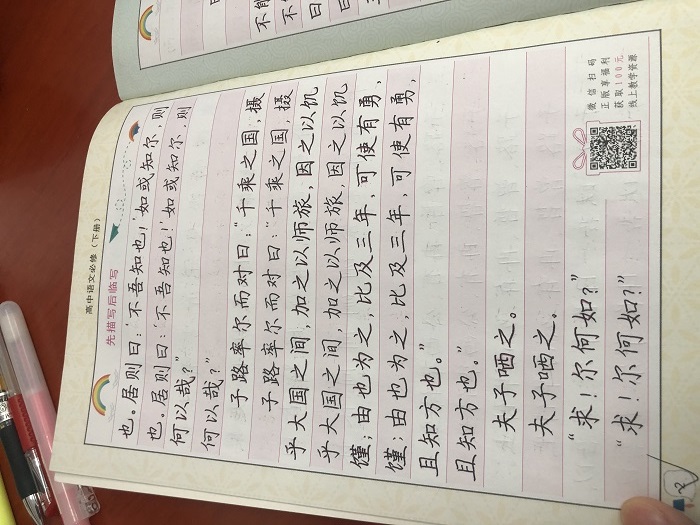 高中语文必修（下册）
先描写后临写
也。居则曰：‘不吾知也！’如或知尔，则
也。居则曰：‘不吾知也！’如或知尔，则
何以哉？”
何以哉？”
子路率尔而对曰：“千乘之国，摄
子路率尔而对曰：“千乘之国，摄
乎大国之间，加之以师旅，因之以饥
乎大国之间，加之以师旅，因之以饥
馑；由也为之，比及三年，可使有勇，
馑；由也为之，比及三年，可使有勇，
且知方也。”
且知方也。”
夫子哂之。
夫子哂之。
“求！尔何如？”
“求！尔何如？”
微信扫码
正版享福利
获取100元
线上教学资源